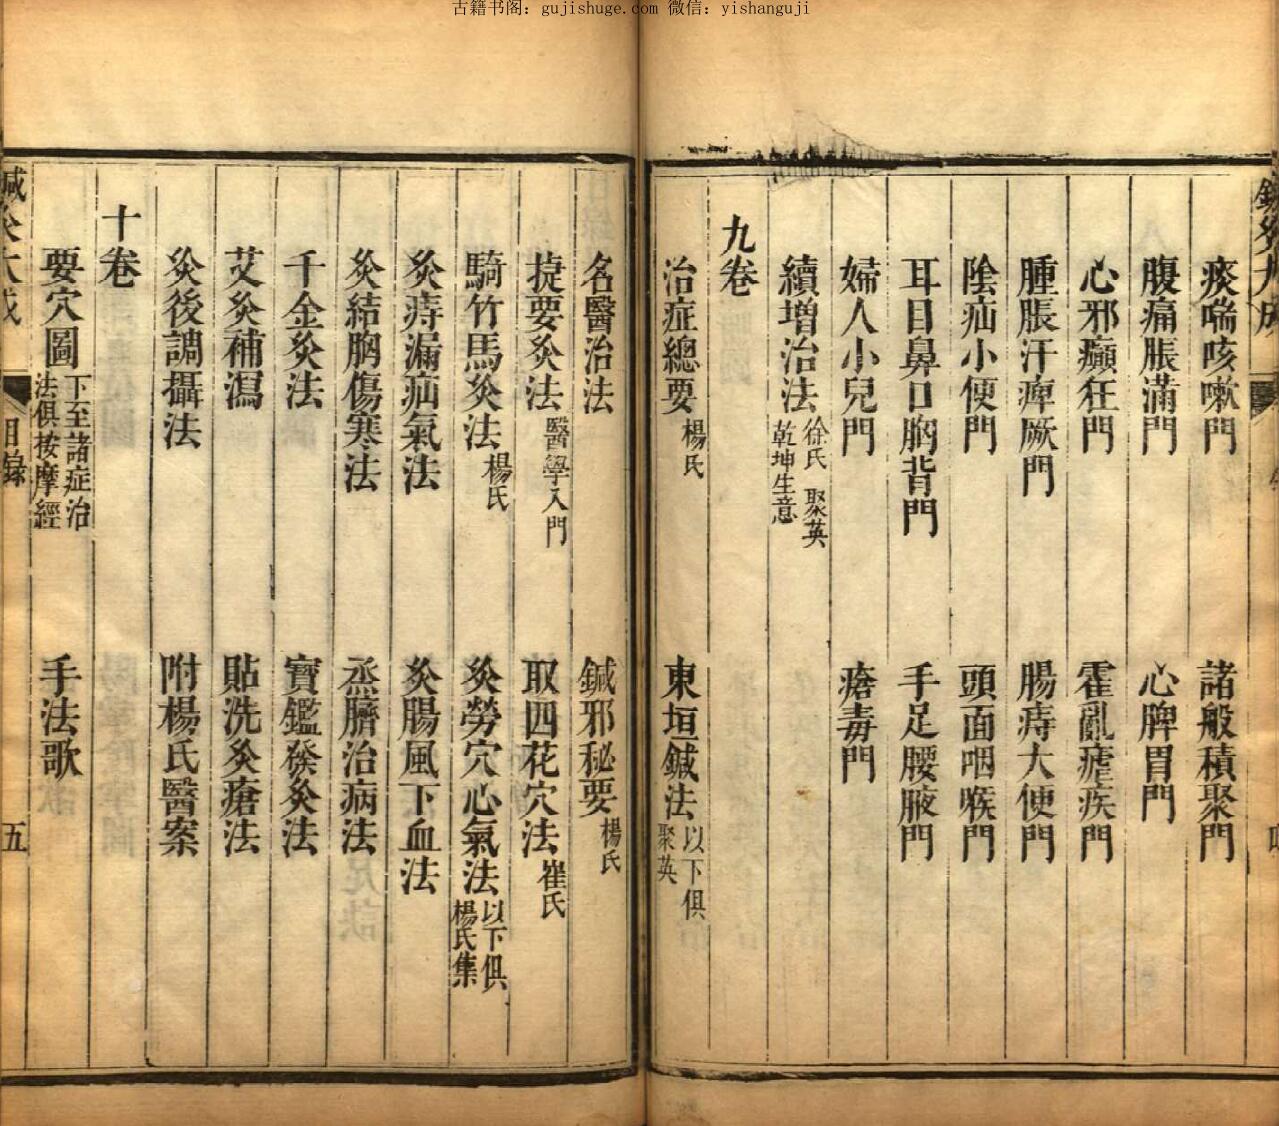 古籍书阁：gujishuge.com 微信：yishanguji
痰喘咳嗽門　諸般積聚門
腹痛脹滿門　心脾胃門
心邪癲狂門　霍亂瘧疾門
腫脹汗痺厥門　腸痔大便門
陰疝小便門　頭面咽喉門
耳目鼻口胸背門　手足腰腋門
婦人小兒門　瘡毒門
續增治法 徐氏　聚英 乾坤生意
九卷
治症總要 楊氏　東垣鍼法 以下俱聚英
名醫治法　鍼邪秘要 楊氏
捷要灸法 醫學入門　取四花穴法 崔氏
騎竹馬灸法 楊氏　灸勞穴心氣法 以下俱楊氏集
灸痔漏疝氣法　灸腸風下血法
灸結胸傷寒法　烝臍治病法
千金灸法　寶鑑發灸法
艾灸補瀉　貼洗灸瘡法
灸後調攝法　附楊氏醫案
十卷
要穴圖 下至諸症治法俱按摩經　手法歌
鍼灸大成　目錄　五